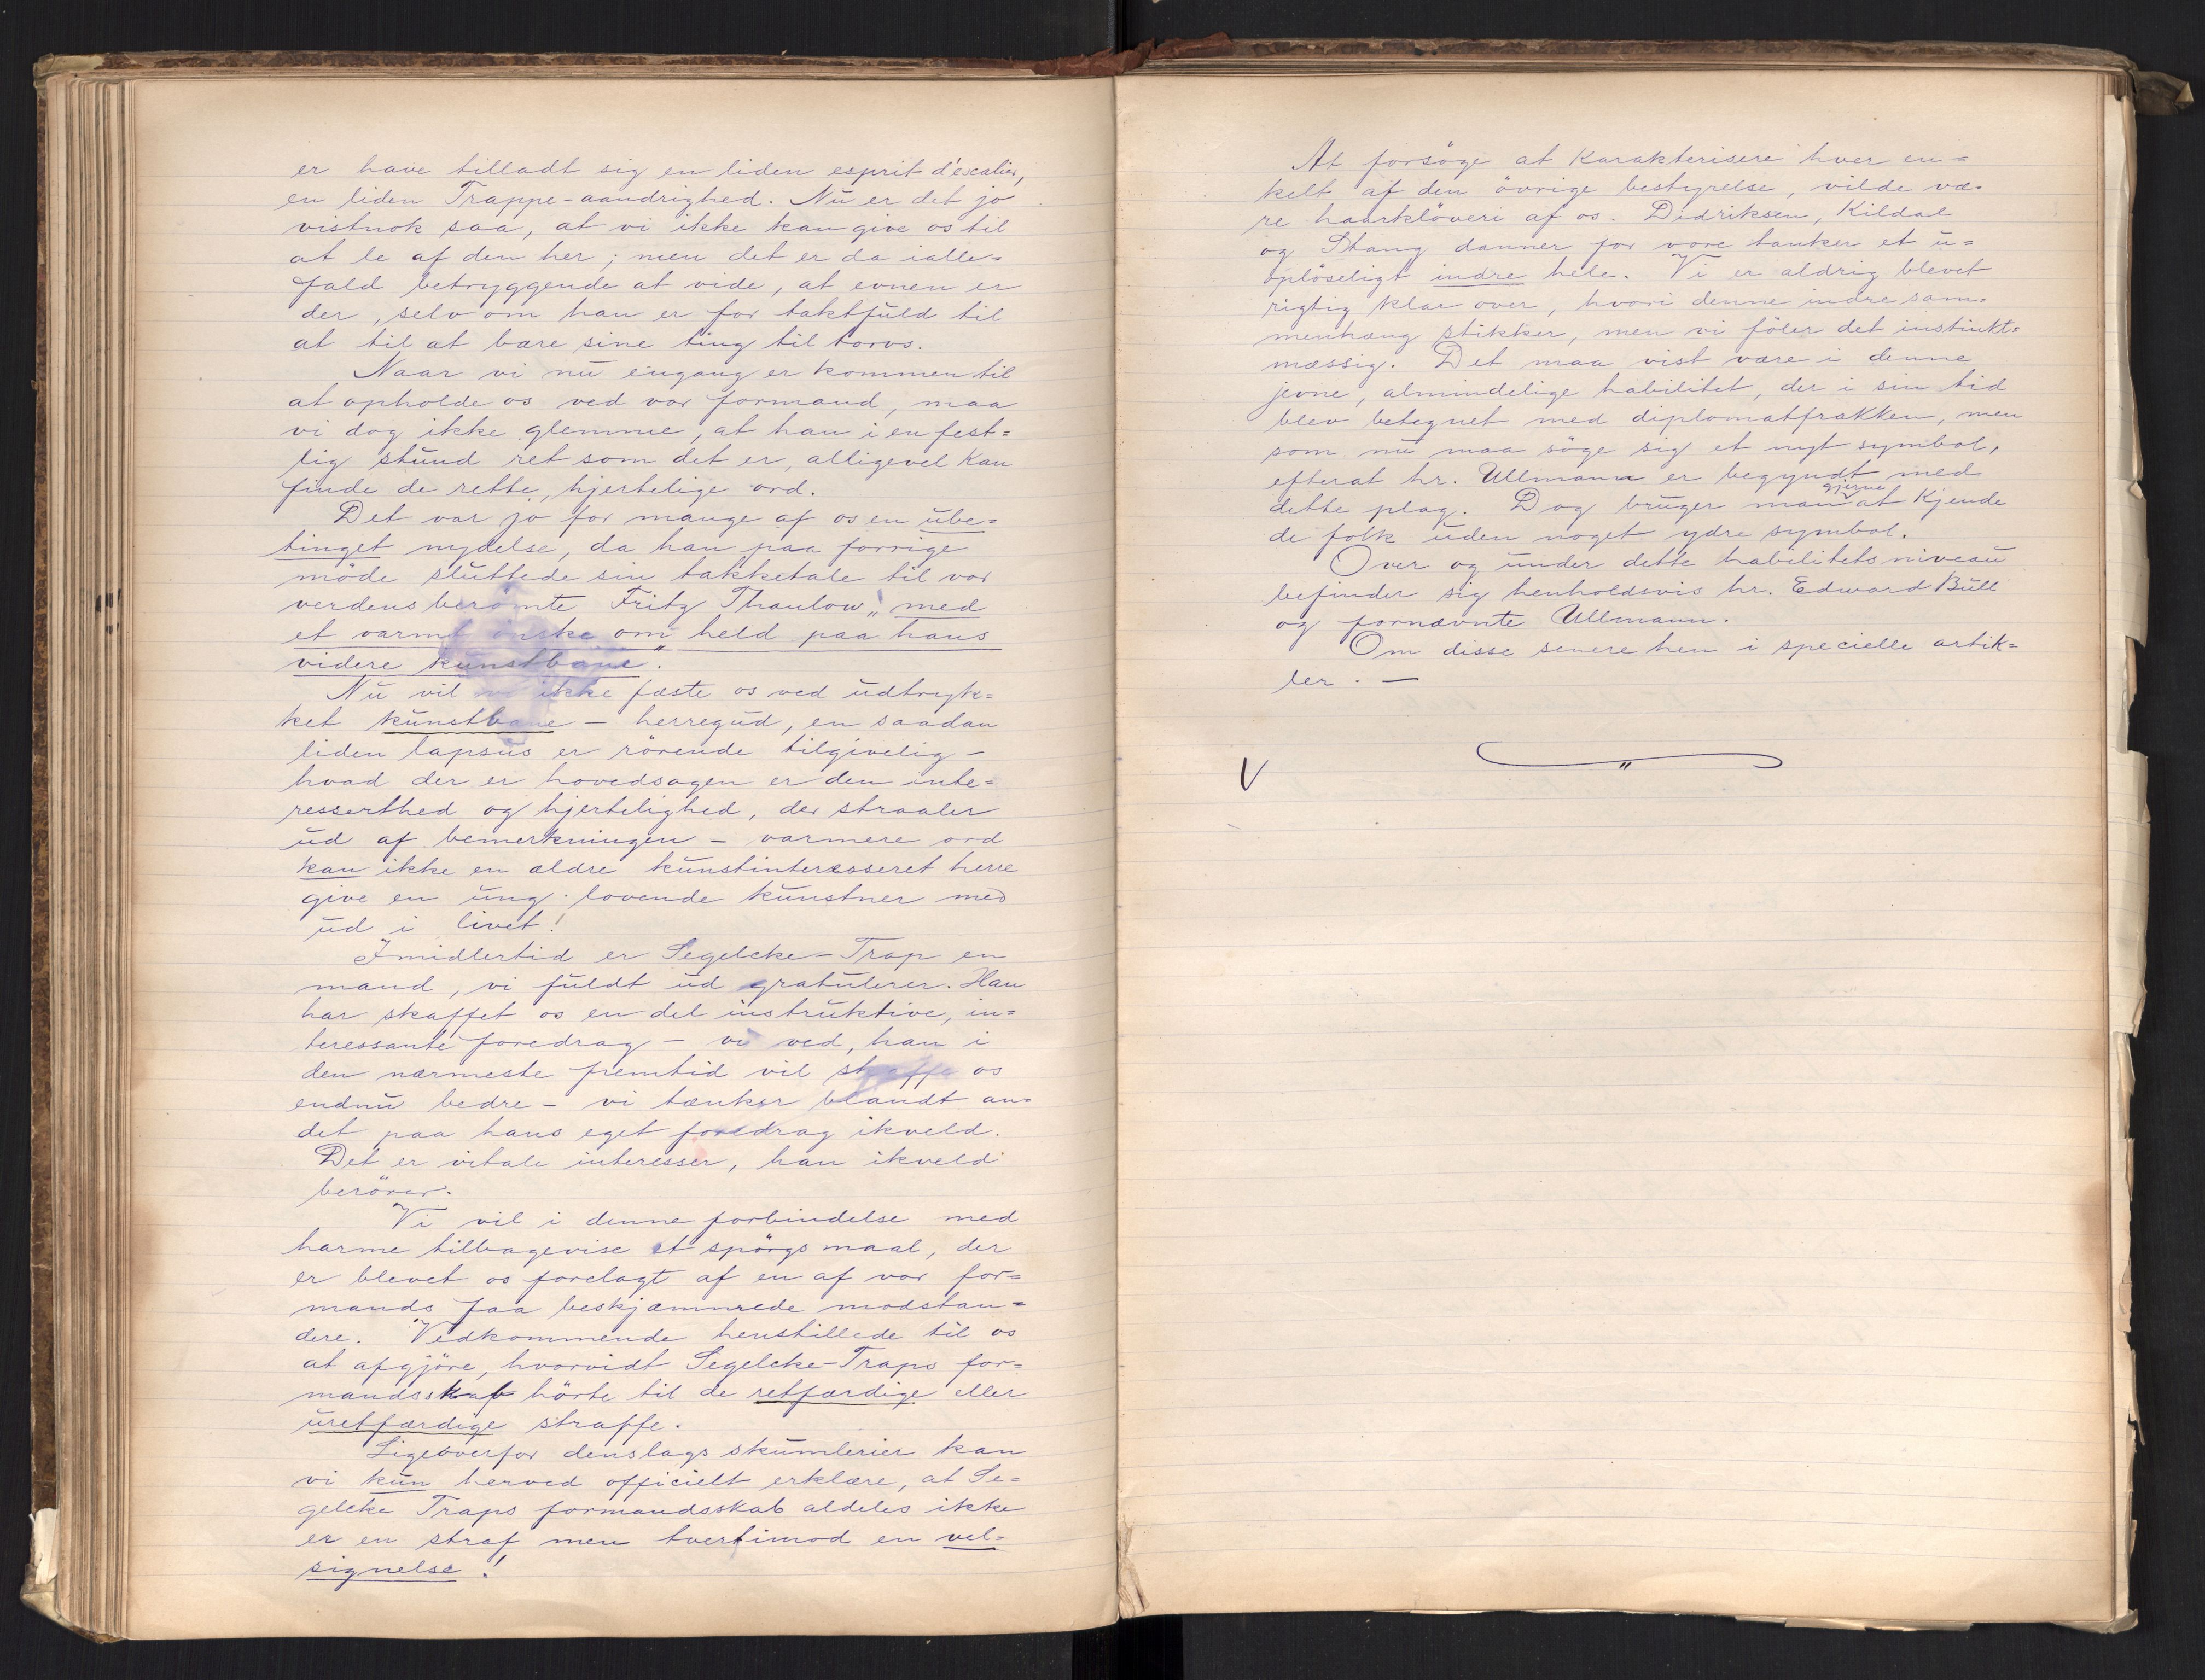 er have tilladt sig en liden esprit d'escalier,
en liden Trappe-aandrighed. Nu er det jo
vistnok saa, at vi ikke kan give os til
at le af den her; men det er da ialle=
fald betryggende at vide, at evnen er
der, selv om han er for taktfuld til
at til at bære sine ting til torvs.
Naar vi nu engang er kommen til
at opholde os ved vor formand, maa
vi dog ikke glemme, at han i en fest=
lig stund ret som det er, alligevel kan
finde de rette, hjertelige ord.
Det var jo for mange af os en ube=
tinget nydelse, da han paa forrige
möde sluttede sin takketale til vor
verdensberömte Fritz Thaulow „med
et varmt önske om held paa hans
videre kunstbane".
Nu vil vi ikke fæste os ved udtryk=
ket kunstbane – herregud, en saadan
liden lapsus er rörende tilgivelig –
hvad der er hovedsagen er den inte=
resserthed og hjertelighed, der straaler
ud af bemerkningen – varmere ord
kan ikke en ældre kunstinteresseret herre
give en ung lovende kunstner med
ud i livet!
Imidlertid er Segelcke-Trap en
mand, vi fuldt ud gratulerer. Han
har skaffet os en del instruktive, in=
teressante foredrag – vi ved, han i
den nærmeste fremtid vil skaffe os
endnu bedre – vi tænker blandt an=
det paa hans eget foredrag ikveld.
Det er vitale interesser, han ikveld
berörer.
Vi vil i denne forbindelse med
harme tilbagevise et spörgsmaal, der
er blevet os forelagt af en af vor for=
mands faa beskjæmmede modstan=
dere. Vedkommende henstillede til os
at afgjöre, hvorvidt Segelcke-Traps for=
mandsskab hörte til de retfærdige eller
uretfærdige straffe.
Ligeoverfor denslags skumlerier kan
vi kun herved officielt erklære, at Se=
gelcke Traps formandsskab aldeles ikke
er en straf men tvertimod en vel=
signelse!
At forsöge at karakterisere hver en=
kelt af den övrige bestyrelse, vilde væ=
re haarklöveri af os. Didriksen, Kildal
og Stang danner for vore tanker et u=
oplöseligt indre hele. Vi er aldrig blevet
rigtig klar over, hvori denne indre sam=
menhæng stikker, men vi föler det instinkt=
mæssig. Det maa vist være i denne
jevne, almindelige habilitet, der i sin tid
blev betegnet med diplomatfrakken, men
som nu maa söge sig et nyt symbol,
efterat hr. Ullmann er begyndt med
dette plag. Dog bruger man gjerne at kjende
de folk uden noget ydre symbol.
Over og under dette habilitetsniveau
befinder sig henholdsvis hr. Edward Bull
og fornævnte Ullmann.
Om disse senere hen i specielle artik=
ler. –
V